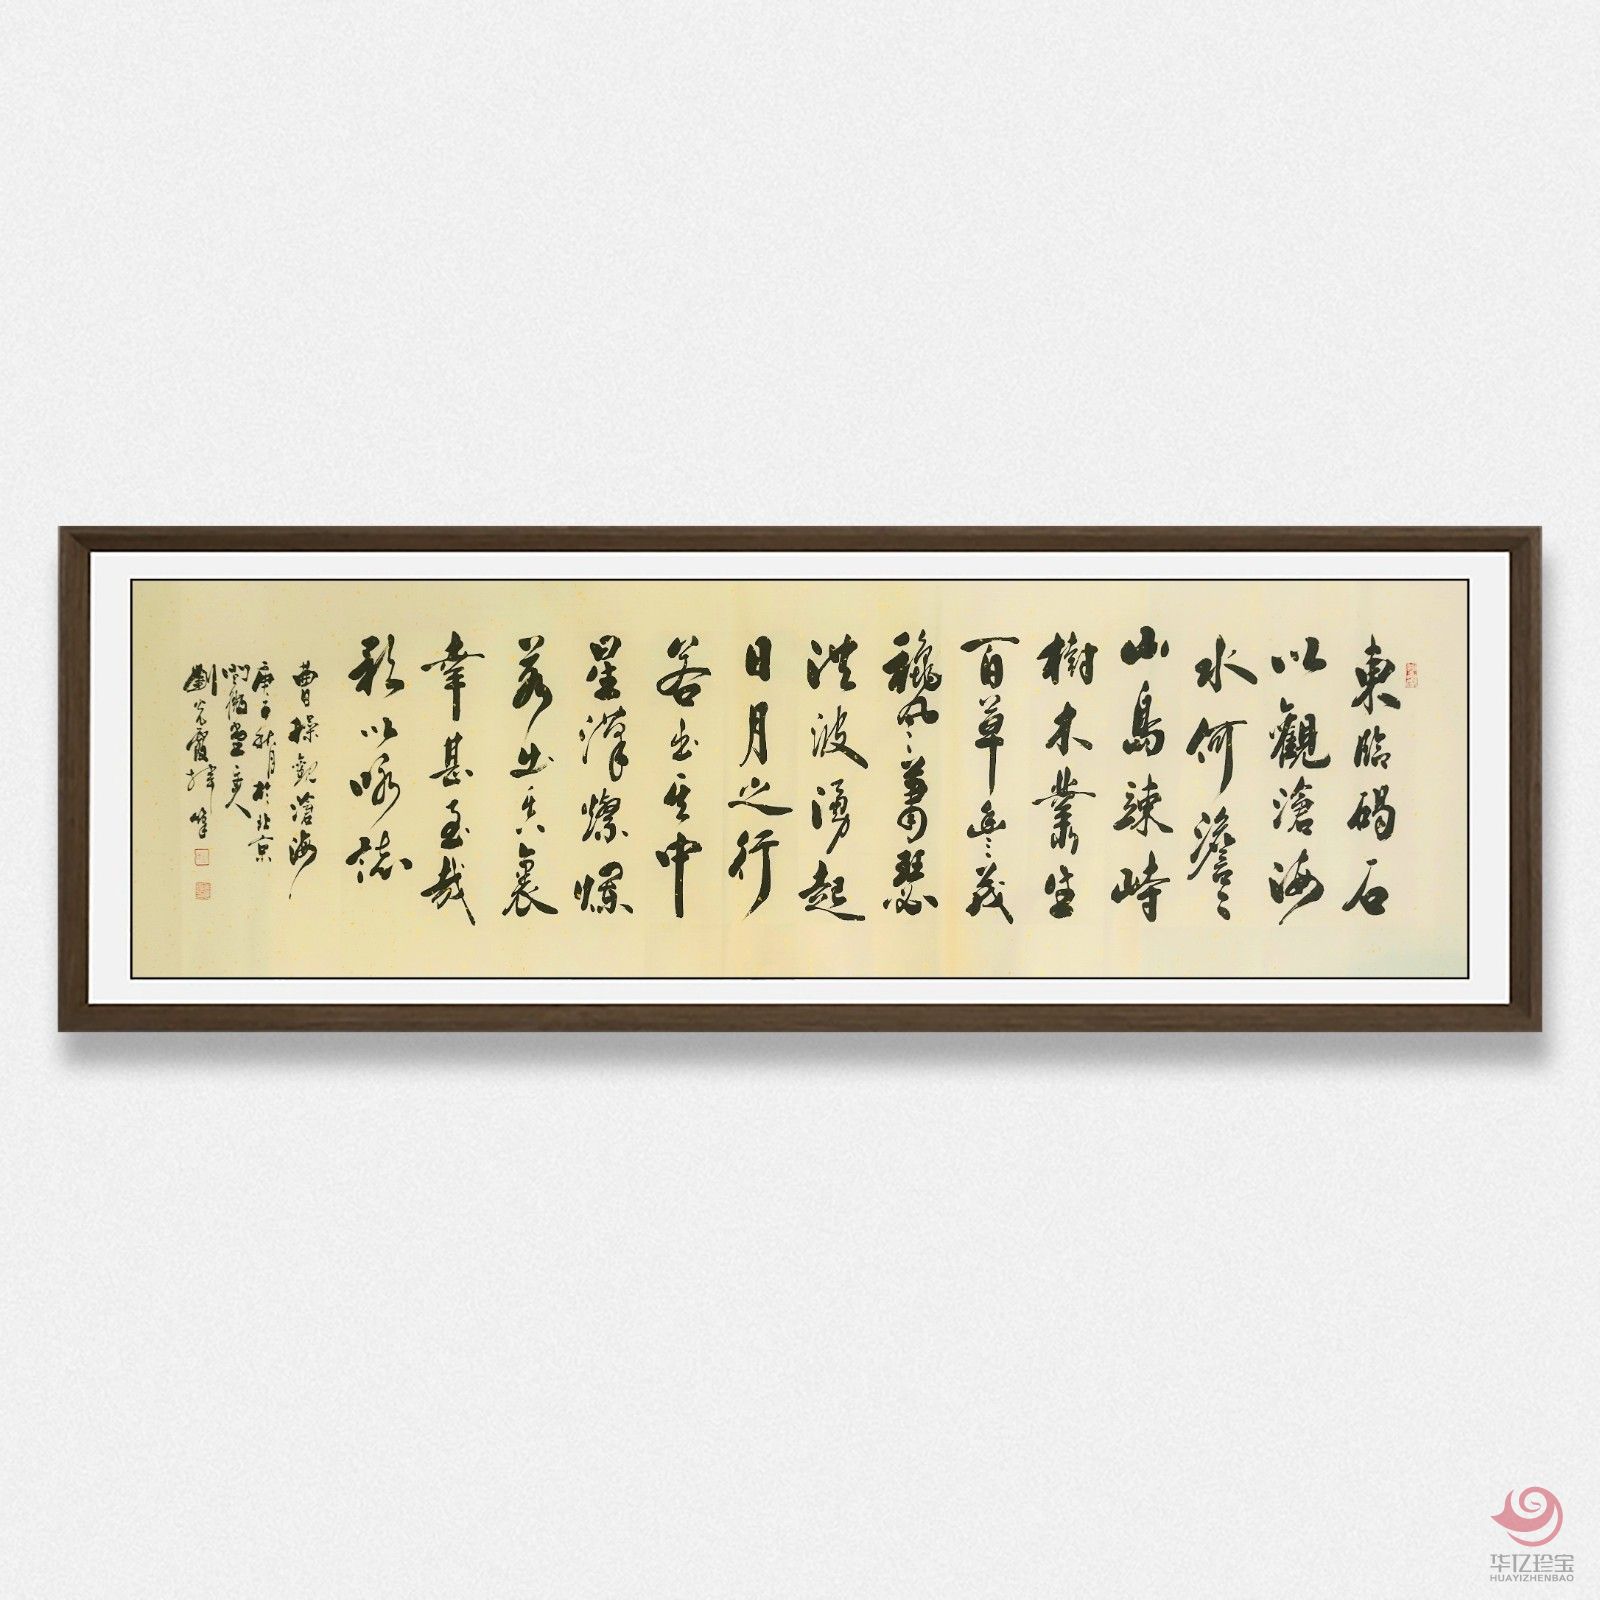 東臨碣石
以觀滄海
水何澹々
山島竦峙
樹木叢生
百草豐茂
穐風蕭瑟
洪波湧起
日月之行
若出其中
星漢燦爛
若出其裏
幸甚至哉
歌以咏誌
曹操觀滄海
庚子秋月於北京
主人
劉光霞
华亿珍宝
HUAYIZHENBAO